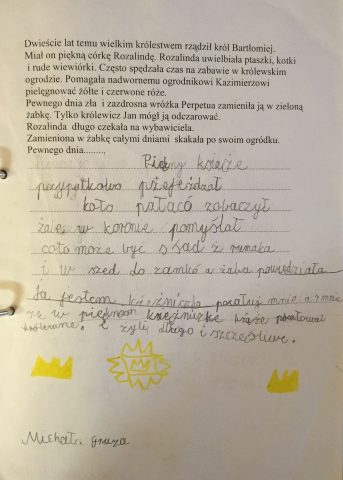 Dwieście lat temu wielkim królestwem rządził król Bartłomiej.
Miał on piękną córkę Rozalindę. Rozalinda uwielbiała ptaszki, kotki
i rude wiewiórki. Często spędzała czas na zabawie w królewskim
ogrodzie. Pomagała nadwornemu ogrodnikowi Kazimierzowi
pielęgnować żółte i czerwone róże.
Pewnego dnia zła i zazdrosna wróżka Perpetua zamieniła ją w zieloną
żabkę. Tylko królewicz Jan mógł ją odczarować.
Rozalinda długo czekała na wybawiciela.
Zamieniona w żabkę całymi dniami skakała po swoim ogródku.
Pewnego dnia........
Piękny książe
przypytkowo przejeżdzał
koło pałacó zobaczył
żabe w koronie pomyślał
coto może być s sad z rumaka
i w szed do zamkó a żaba powiedziała
Ja jestem księżniczką pocałuj mnie a zmie
że w pięknom księżnizke książe pocałował
królewne. I żyli długo i szczęśliwe.
Michał Gruza